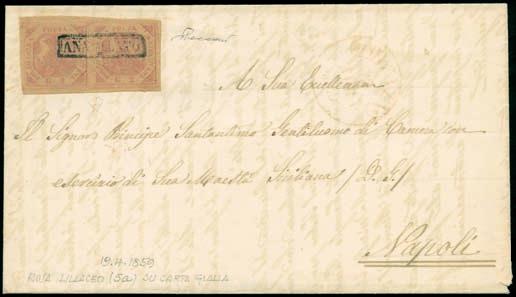 ANNULLATO
A Sua Eccellenza
Il Signor Principe Santantimo Gentiluomo di Camera con
esercizio di Sua Maestà Siciliana / D. G. /
Napoli
19.4.1859
ROSA LILLACEO (5a) SU CARTA GIALLA